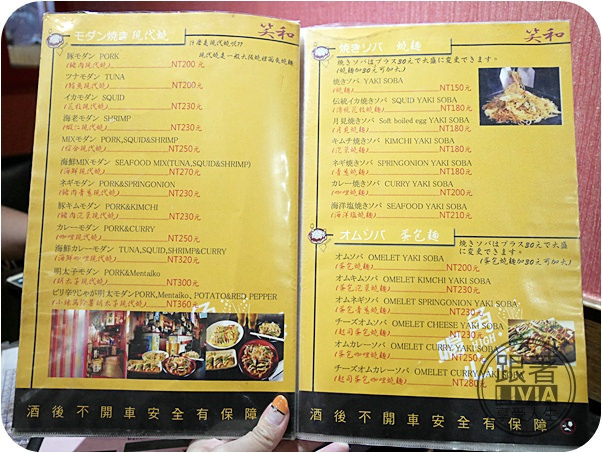 笑和
モダン燒き 現代燒
什麼是現代燒呢??
豚モダン PORK
(豬肉現代燒) NT200元
ツナモダン TUNA
(鮪魚現代燒) NT200元
イカモダン SQUID
(花枝現代燒) NT230元
海老モダン SHRIMP
(蝦仁現代燒) NT230元
MIXモダン PORK,SQUID&SHRIMP
(綜合現代燒) NT250元
海鮮MIXモダン SEAFOOD MIX(TUNA,SQUID&SHRIMP)
(海鮮現代燒) NT270元
ネギモダン PORK&SPRINGONION
(豬肉青蔥現代燒) NT230元
豚キムモダン PORK&KIMCHI
(豬肉泡菜現代燒) NT230元
カレーモダン PORK&CURRY
(咖哩現代燒) NT250元
海鮮カレーモダン TUNA,SQUID,SHRIMP&CURRY
(海鮮咖哩現代燒) NT320元
明太子モダン PORK&Mentaiko
(明太子現代燒) NT300元
ピリ辛?じゃが明太モダン PORK,Mentaiko, POTATO&RED PEPPER
NT360元
酒後不開車安全有保障
笑和
焼きソバ 燒麵
焼きソバはプラス80元で大盛に変更できます。
(燒麵加80元可加大)
焼きソバ YAKI SOBA
(燒麵) NT150元
伝統イカ焼きソバ SQUID YAKI SOBA
(傳統花枝燒麵) NT180元
月見焼きソバ Soft boiled egg YAKI SOBA
(月見燒麵) NT180元
キムチ焼きソバ KIMCHI YAKI SOBA
(泡菜燒麵) NT180元
ネギ焼きソバ SPRINGONION YAKI SOBA
(青蔥燒麵) NT180元
カレー焼きソバ CURRY YAKI SOBA
(咖哩燒麵) NT200元
海洋塩焼きソバ SEAFOOD YAKI SOBA
(海洋塩燒麵) NT210元
オムソバ 蛋包麵
焼きソバはプラス80元で大盛
に変更できます。
(蛋包燒麵加80元可加大)
オムソバ OMELET YAKI SOBA
(蛋包燒麵) NT200元
オムキムソバ OMELET KIMCHI YAKI SOBA
(蛋包泡菜燒麵) NT230元
オムネギソバ OMELET SPRINGONION YAKI SOBA
(蛋包青蔥燒麵) NT230元
チーズオムソバ OMELET CHEESE YAKI SOBA
(起司蛋包燒麵) NT230元
オムカレーソバ OMELET CURRY YAKI SOBA
(蛋包咖哩燒麵) NT250元
チーズオムカレーソバ OMELET CURRY YAKI SOBA
(起司蛋包咖哩燒麵) NT280元
酒後不開車安全有保障
跟著
LIVIA